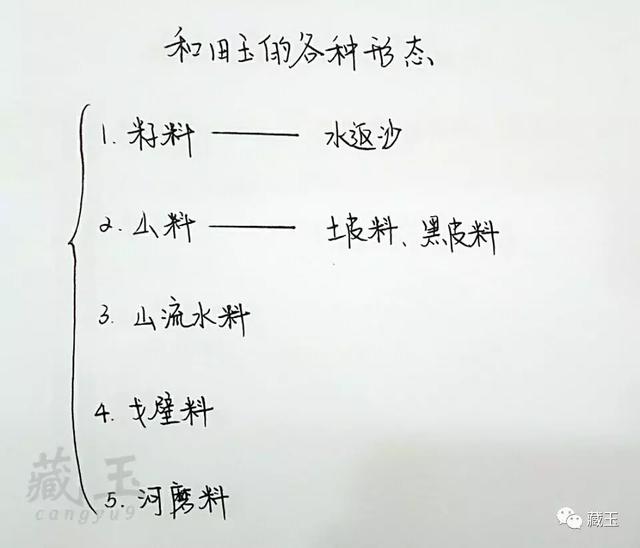 和田玉的各种形态
1. 籽料 —— 水返沙
2. 山料 —— 土皮料、黑皮料
3. 山流水料
4. 戈壁料
5. 河磨料
藏玉
cangyu9
藏玉